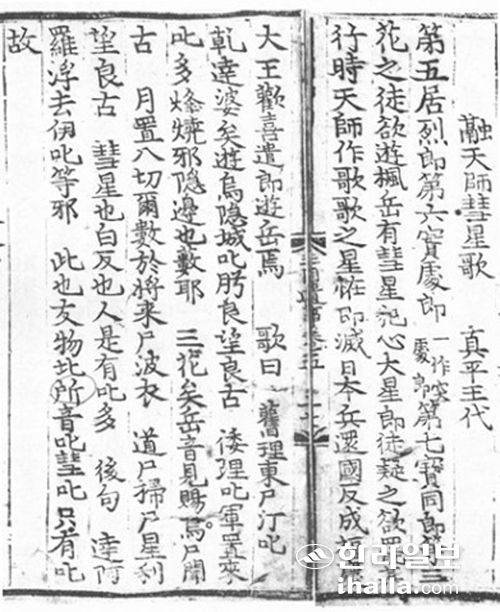 融天師彗星歌　真平王代
第五居烈郎第六實處郎一作突處郎第七寶同郎等三
花之徒欲遊楓岳有彗星犯心大星郎徒疑之欲罷
行時天師作歌歌之星恠即滅日本兵還國反成福
三國遺事卷五
大王歡喜遣郎遊岳焉　歌曰　舊理東尸汀叱
乾達婆矣遊烏隱城叱肹良望良古　倭理叱軍置來
叱多烽燒邪隱邊也藪耶　三花矣岳音見賜烏尸聞
古　月置八切爾數於將来尸波衣　道尸掃尸星利
望良古　彗星也白反也人是有叱多　後句　達阿
羅浮去伊叱等邪　此也友物北所音叱彗叱只有叱
故
한라일보
ihalla.com